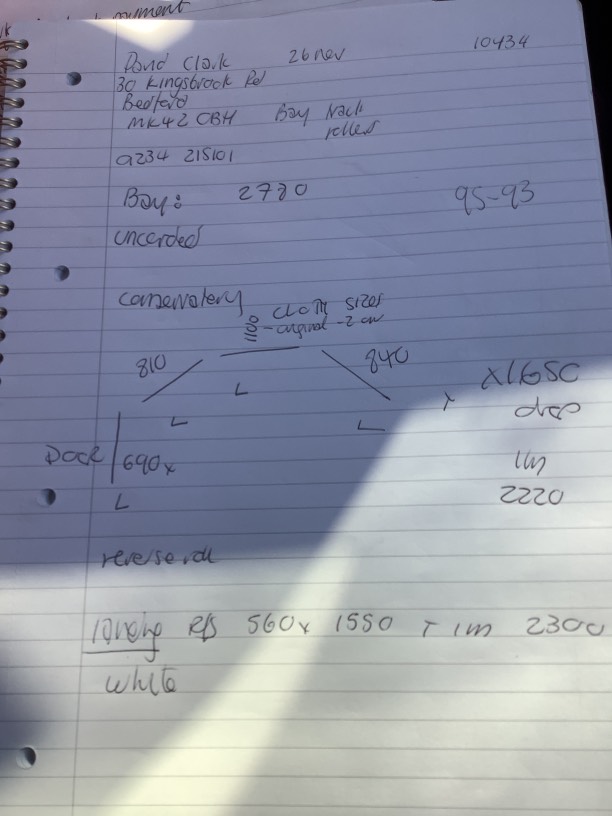 David Clark 26 nov 10434
30 Kingsbrook Rd
Bedford
MK42 0BH Bay track
rollers
01234 215101
Bay: 2780 95-93
uncorded
conservatory
cloth sizes
1100 - original -2 cm
810 840
x1650
drop
Door 690x
1m
2220
L L L L
reverse roll
landing R/S 560x 1550 + 1m 2300
white